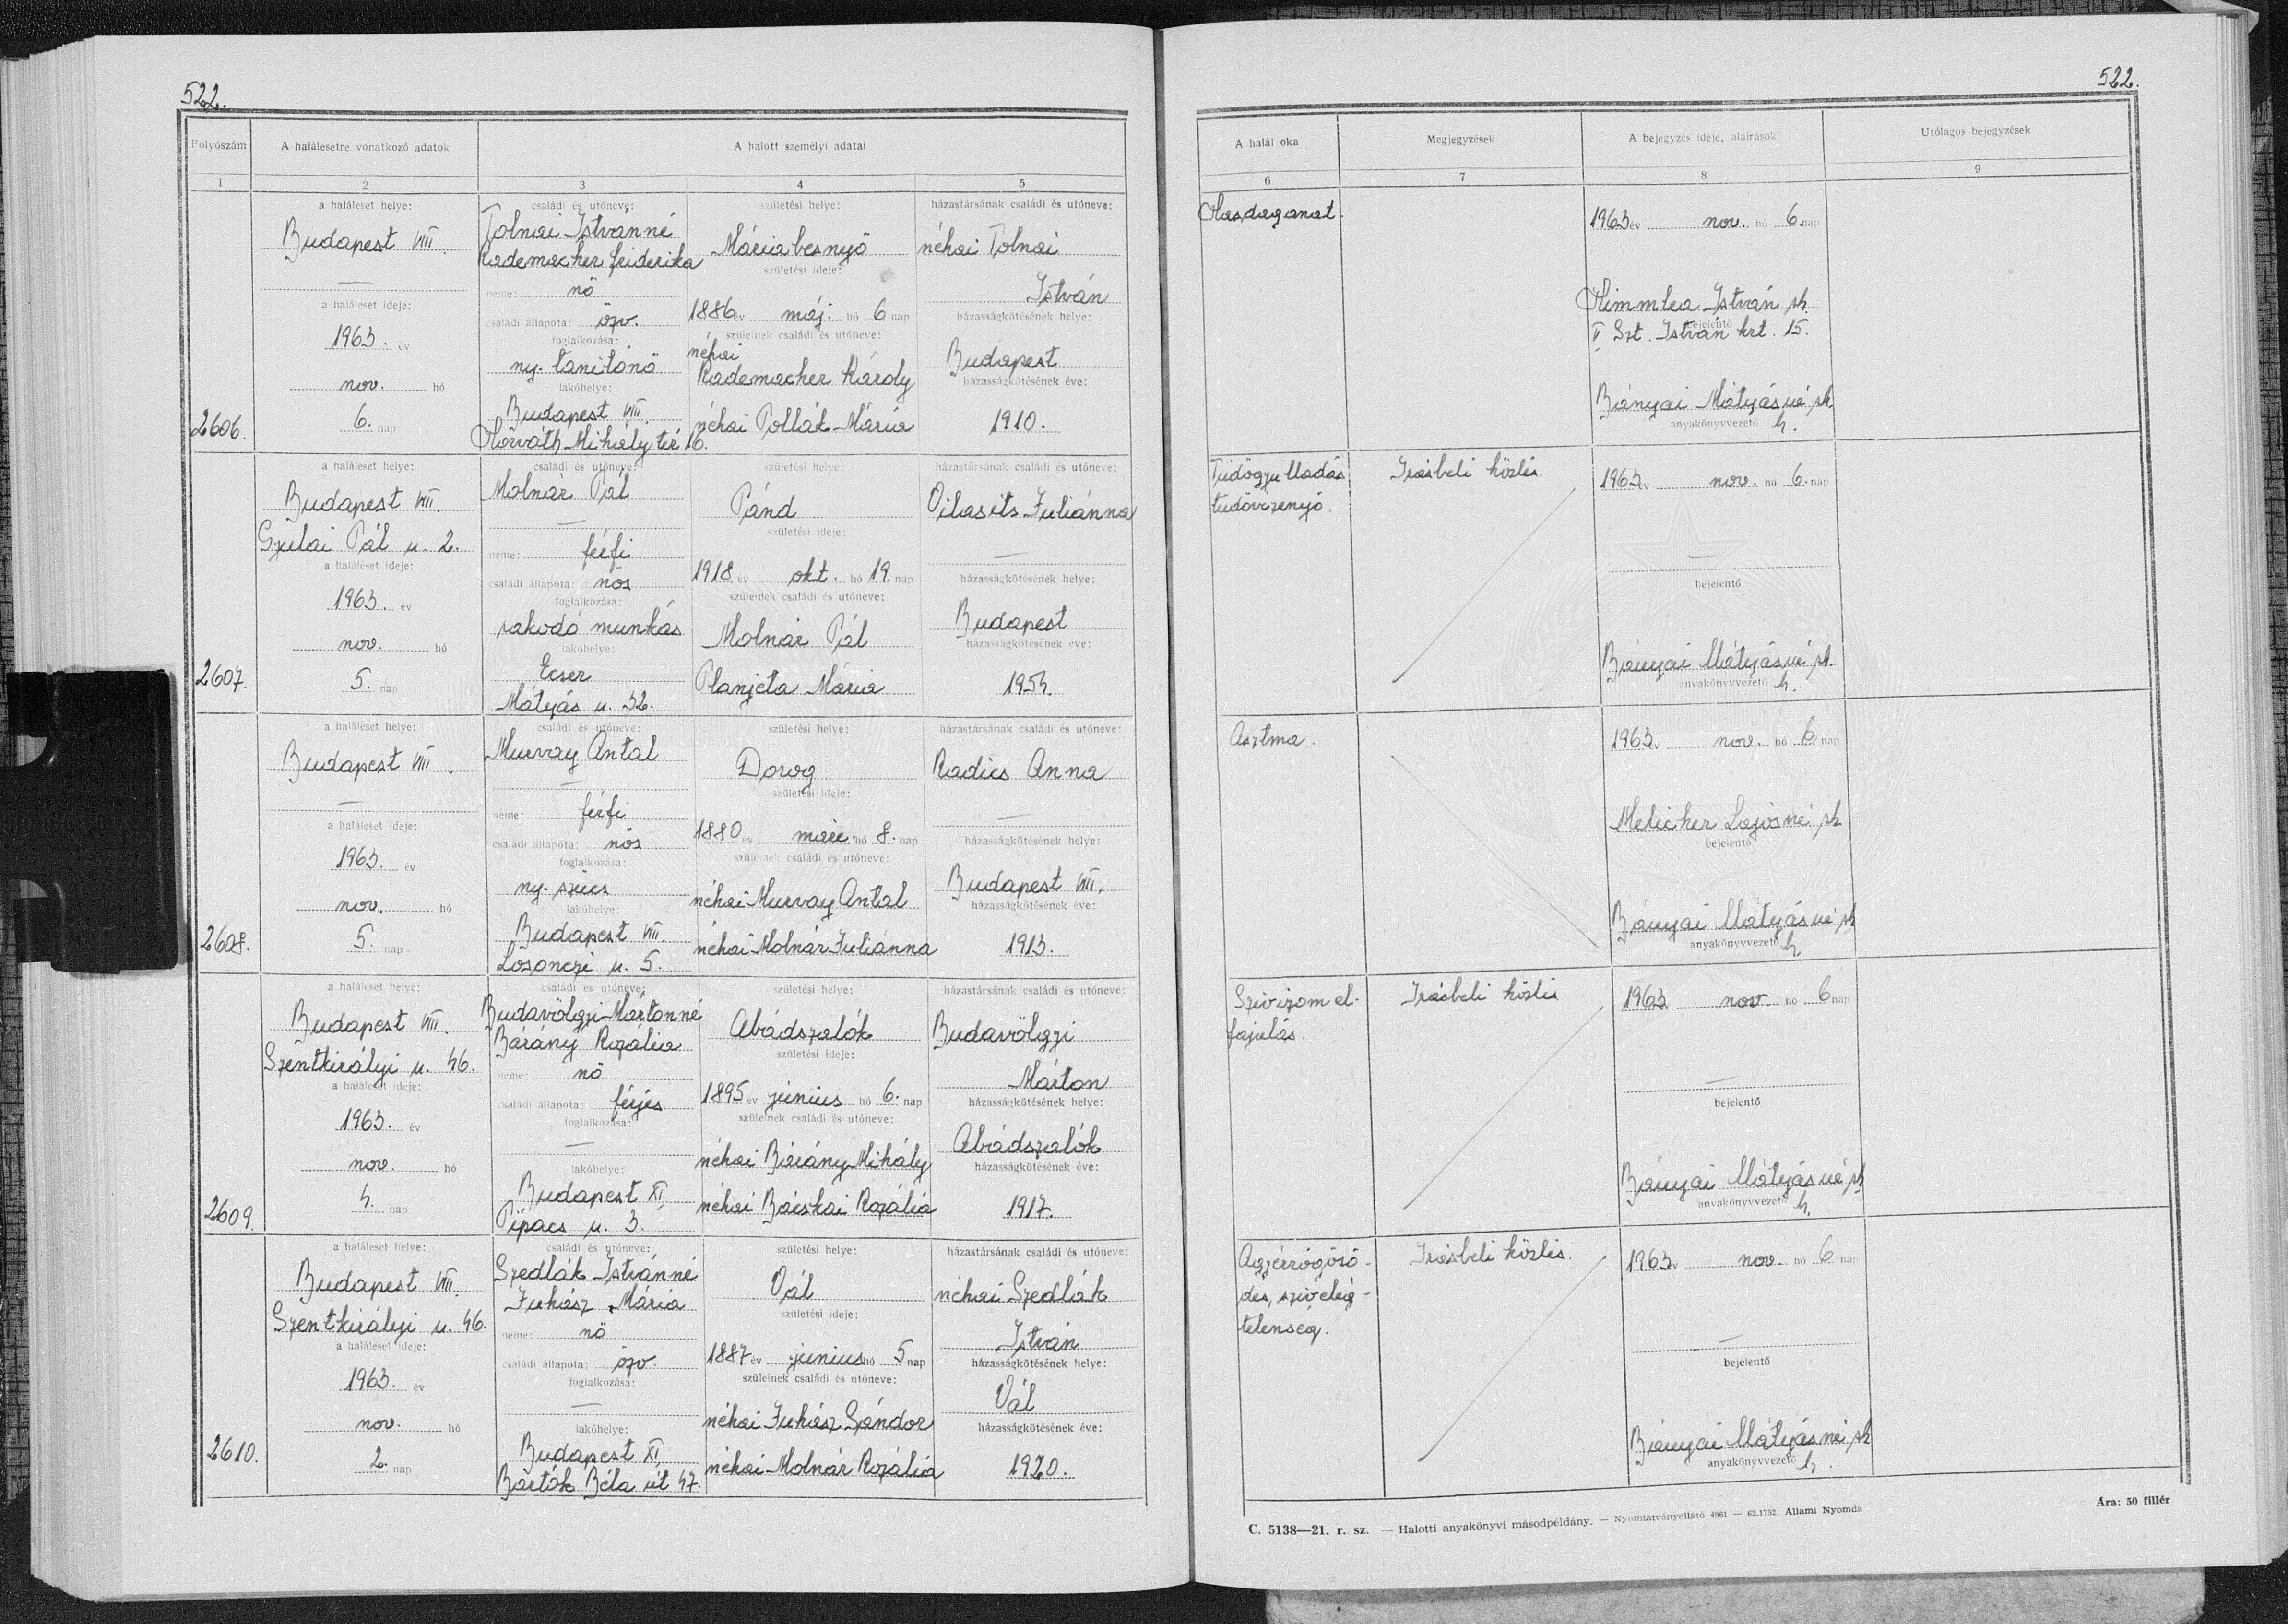 522.
Folyószám
A halálesetre vonatkozó adatok
A halott személyi adatai
1
2
3
4
5
a haláleset helye:
Budapest VIII.
—
a haláleset ideje:
1963. év
nov. hó
6. nap
2606.
családi és utóneve:
Tolnai Istvánné
Rademacher Friderika
neme: nő
családi állapota: özv.
foglalkozása:
ny. tanítónő
lakóhelye:
Budapest VIII.
Horváth Mihály tér 16.
születési helye:
Máriabesnyő
születési ideje:
1886 év máj. hó 6 nap
szüleinek családi és utóneve:
néhai
Rademacher Károly
néhai Pollák Mária
házastársának családi és utóneve:
néhai Tolnai
István
házasságkötésének helye:
Budapest
házasságkötésének éve:
1910.
a haláleset helye:
Budapest VIII.
Gyulai Pál u. 2.
a haláleset ideje:
1963. év
nov. hó
5. nap
2607.
családi és utóneve:
Molnár Pál
—
neme: férfi
családi állapota: nős
foglalkozása:
rakodó munkás
lakóhelye:
Ecser
Mátyás u. 32.
születési helye:
Pánd
születési ideje:
1918 év okt. hó 19. nap
szüleinek családi és utóneve:
Molnár Pál
Planjeta Mária
házastársának családi és utóneve:
Vilasits Juliánna
—
házasságkötésének helye:
Budapest
házasságkötésének éve:
1954.
a haláleset helye:
Budapest VIII.
—
a haláleset ideje:
1963. év
nov. hó
5. nap
2608.
családi és utóneve:
Murvay Antal
—
neme: férfi
családi állapota: nős
foglalkozása:
ny. szűcs
lakóhelye:
Budapest VIII.
Losonczi u. 5.
születési helye:
Dorog
születési ideje:
1880 év márc. hó 8. nap
szüleinek családi és utóneve:
néhai Murvay Antal
néhai Molnár Juliánna
házastársának családi és utóneve:
Radics Anna
—
házasságkötésének helye:
Budapest VIII.
házasságkötésének éve:
1913.
a haláleset helye:
Budapest VIII.
Szentkirályi u. 46.
a haláleset ideje:
1963. év
nov. hó
4. nap
2609.
családi és utóneve:
Budavölgyi Mártonné
Bárány Rozália
neme: nő
családi állapota: férjes
foglalkozása:
—
lakóhelye:
Budapest XI.
Pipacs u. 3.
születési helye:
Abádszalók
születési ideje:
1895 év junius hó 6. nap
szüleinek családi és utóneve:
néhai Bárány Mihály
néhai Bácskai Rozália
házastársának családi és utóneve:
Budavölgyi
Márton
házasságkötésének helye:
Abádszalók
házasságkötésének éve:
1917.
a haláleset helye:
Budapest VIII.
Szentkirályi u. 46.
a haláleset ideje:
1963. év
nov. hó
2. nap
2610.
családi és utóneve:
Szedlák Istvánné
Juhász Mária
neme: nő
családi állapota: özv.
foglalkozása:
—
lakóhelye:
Budapest XI.
Bartók Béla út 47.
születési helye:
Vál
születési ideje:
1887 év junius hó 5 nap
szüleinek családi és utóneve:
néhai Juhász Sándor
néhai Molnár Rozália
házastársának családi és utóneve:
néhai Szedlák
István
házasságkötésének helye:
Vál
házasságkötésének éve:
1920.
522.
A halál oka
Megjegyzések
A bejegyzés ideje, aláírások
Utólagos bejegyzések
6
7
8
9
Hasdaganat.
1963 év nov. hó 6. nap
István sk.
bejelentő
V. Szt. István krt. 15.
Bányai Mátyásné sk.
anyakönyvvezető h.
Tüdőgyulladás
tüdővizenyő.
Irásbeli közlés.
1963 év nov. hó 6. nap
—
bejelentő
Bányai Mátyásné sk.
anyakönyvvezető h.
Asztma.
1963 év nov. hó 6 nap
Melicher Lajosné sk
bejelentő
Bányai Mátyásné sk
anyakönyvvezető h.
Szivizom el-
fajulás.
Irásbeli közlés
1963 nov. hó 6 nap
—
bejelentő
Bányai Mátyásné sk
anyakönyvvezető h.
Agyérrögösö-
dés, szivelég-
telenség.
Irásbeli közlés.
1963 év nov. hó 6 nap
—
bejelentő
Bányai Mátyásné sk
anyakönyvvezető h.
C. 5138—21. r. sz. — Halotti anyakönyvi másodpéldány. — Nyomtatványellátó 4961 — 62.1752. Állami Nyomda
Ára: 50 fillér